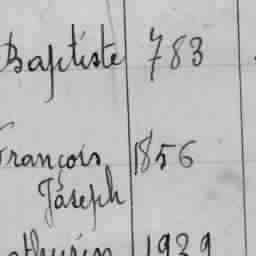 Baptiste 783
François 1856
Joseph
1939